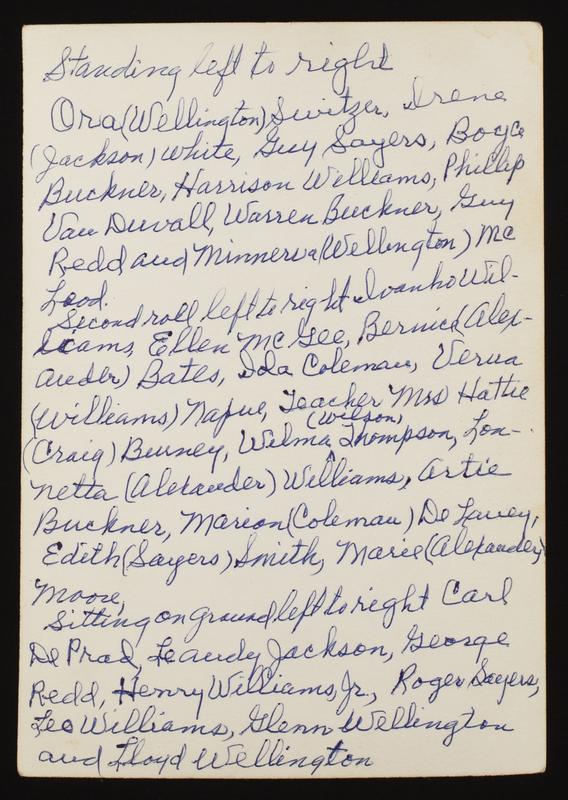 Standing left to right
Ora (Wellington) Switzer, Irene
(Jackson) White, Guy Sayers, Boyce
Buckner, Harrison Williams, Phillip
Van Duvall, Warren Buckner, Guy
Redd and Minnerva (Wellington) Mc
Lood.
Second roll left to right Ivanho Wil-
liams, Ellen McGee, Bernice (Alex-
ander) Bates, Ida Coleman, Verna
(Williams) Napue, Teacher Mrs Hattie
(Craig) Burney, Wilma (Wilson) Thompson, Lon-
netta (Alexander) Williams, Artie
Buckner, Marion (Coleman) De Lavey,
Edith (Sayers) Smith, Marie (Alexander)
Moore,
Sitting on ground left to right Carl
De Prad, Leandy Jackson, George
Redd, Henry Williams, Jr., Roger Sayers,
Leo Williams, Glenn Wellington
and Lloyd Wellington